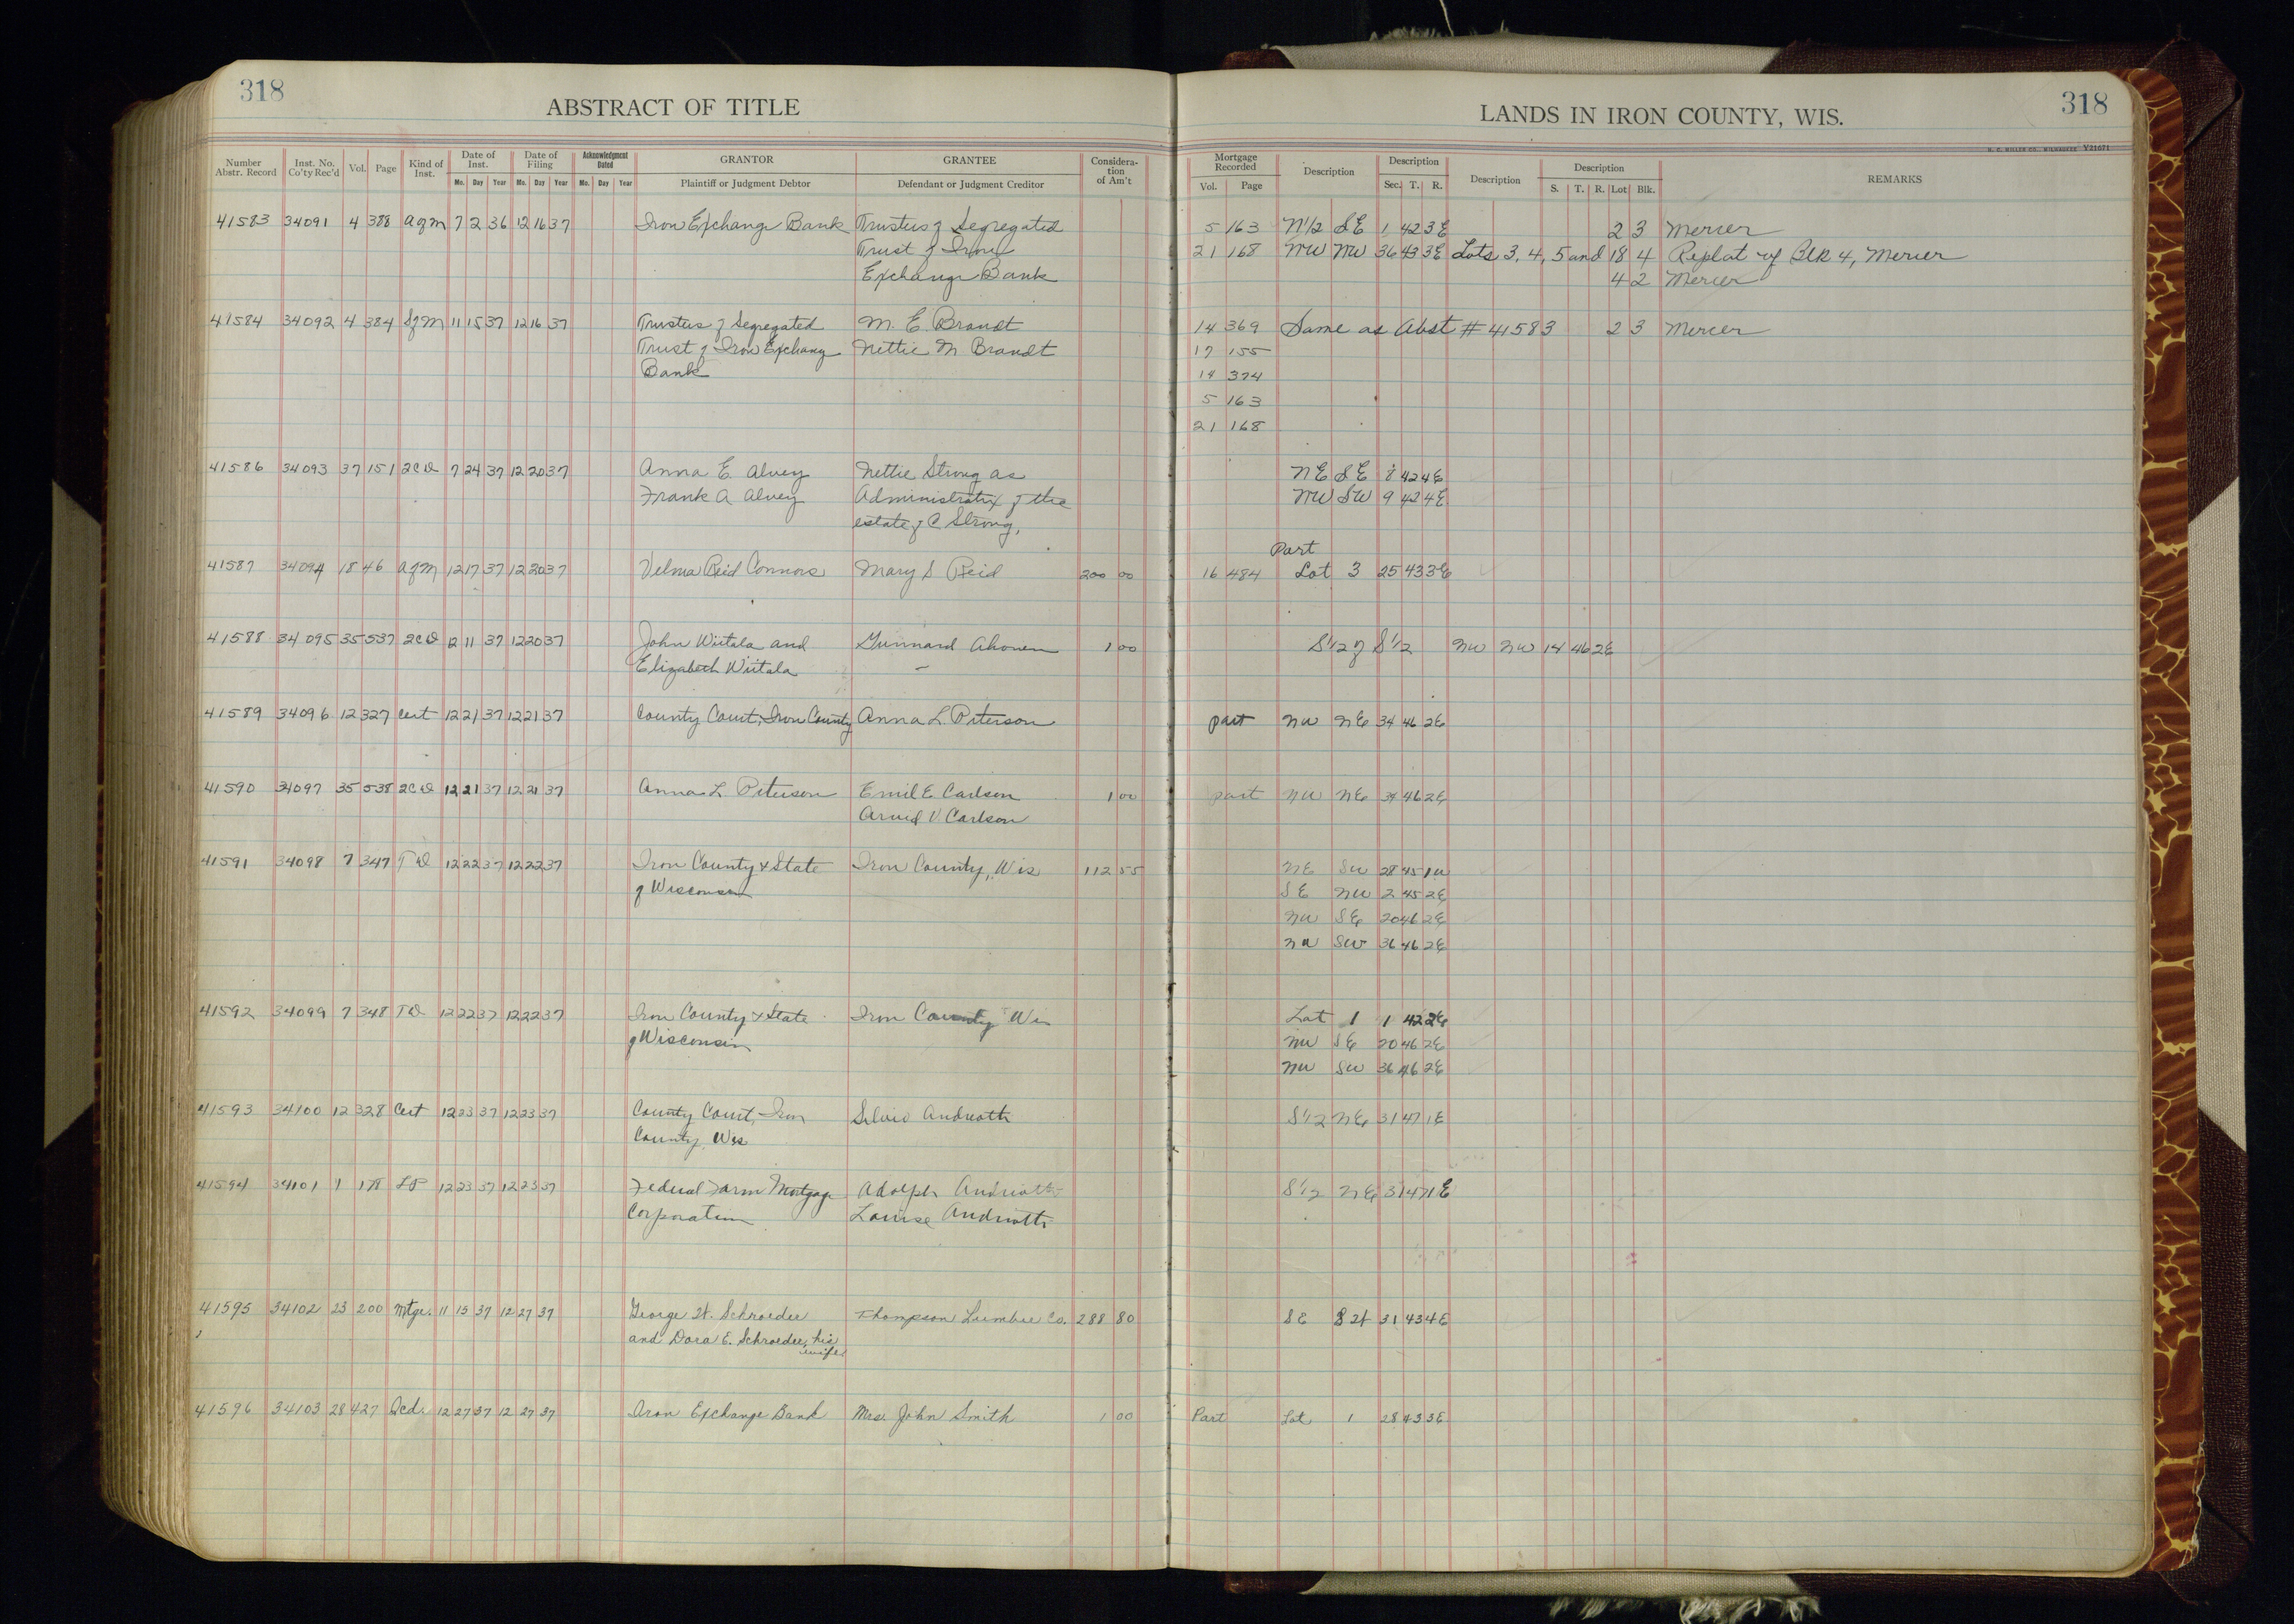 318
ABSTRACT OF TITLE
LANDS IN IRON COUNTY, WIS.
318
H. C. MILLER CO., MILWAUKEE Y21671
Number Abstr. Record Inst. No. Co'ty Rec'd Vol. Page Kind of Inst. Date of Inst. Mo. Day Year Date of Filing Mo. Day Year Acknowledgment Dated Mo. Day Year GRANTOR Plaintiff or Judgment Debtor GRANTEE Defendant or Judgment Creditor Considera-tion of Am't Mortgage Recorded Vol. Page Description Description Sec. T. R. Description Description S. T. R. Lot Blk. REMARKS
41583 34091 4 388 agm 7 2 36 12 16 37 Iron Exchange Bank Trustees of Segregated 5 163 N1/2 SE 1 42 3E 2 3 Mercer
Trust of Iron 21 168 NW NW 36 43 3E Lots 3, 4, 5 and 18 4 Replat of Blk 4, Mercer
Exchange Bank 4 2 Mercer
41584 34092 4 384 Sfm 11 15 37 12 16 37 Trustees of Segregated M. E. Brandt 14 369 Same as Abst # 41583 2 3 Mercer
Trust of Iron Exchang Nettie M Brandt 17 155
Bank 14 374
5 163
21 168
41586 34093 37 151 2CD 7 24 37 12 20 37 Anna E. Alvey Nettie Strong as NE SE 8 42 4E
Frank A Alvey Administratrix of the NW SW 9 42 4E
estate of C Strong,
Part
41587 34094 18 46 afm 12 17 37 12 20 37 Velma Reid Connors Mary S Reid 200 00 16 484 Lot 3 25 43 3E
41588 34095 35 537 2CD 12 11 37 12 20 37 John Wiitala and Gunnard Ahonen 1 00 S1/2 of S1/2 NW NW 14 46 2E
Elizabeth Wiitala
41589 34096 12 327 Cert 12 21 37 12 21 37 County Court, Iron County Anna L. Peterson part NW NE 34 46 2E
41590 34097 35 538 2CD 12 21 37 12 21 37 Anna L Peterson Emil E Carlson 1 00 part NW NE 34 46 2E
Arvid V Carlson
41591 34098 7 347 TD 12 22 37 12 22 37 Iron County & State Iron County, Wis 112 55 NE SW 28 45 1W
of Wisconsin SE NW 2 45 2E
NW SE 20 46 2E
NW SW 36 46 2E
41592 34099 7 348 TD 12 22 37 12 22 37 Iron County & State Iron County Wis Lot 1 1 42 2E
of Wisconsin NW SE 20 46 2E
NW SW 36 46 2E
41593 34100 12 328 Cert 12 23 37 12 23 37 County Court, Iron Silvio Andreotti S1/2 NE 31 47 1E
County, Wis
41594 34101 1 178 LP 12 23 37 12 23 37 Federal Farm Mortgage Adolph Andreotti S1/2 NE 31 47 1E
Corporation Louise Andreotti
41595 34102 23 200 Mtge. 11 15 37 12 27 37 George W. Schroeder Thompson Lumber Co. 288 80 SE 31 43 4E
and Dora E. Schroeder, his
wife
41596 34103 28 427 Qcd. 12 27 37 12 27 37 Iron Exchange Bank Mrs. John Smith 1 00 Part Lot 1 28 43 3E